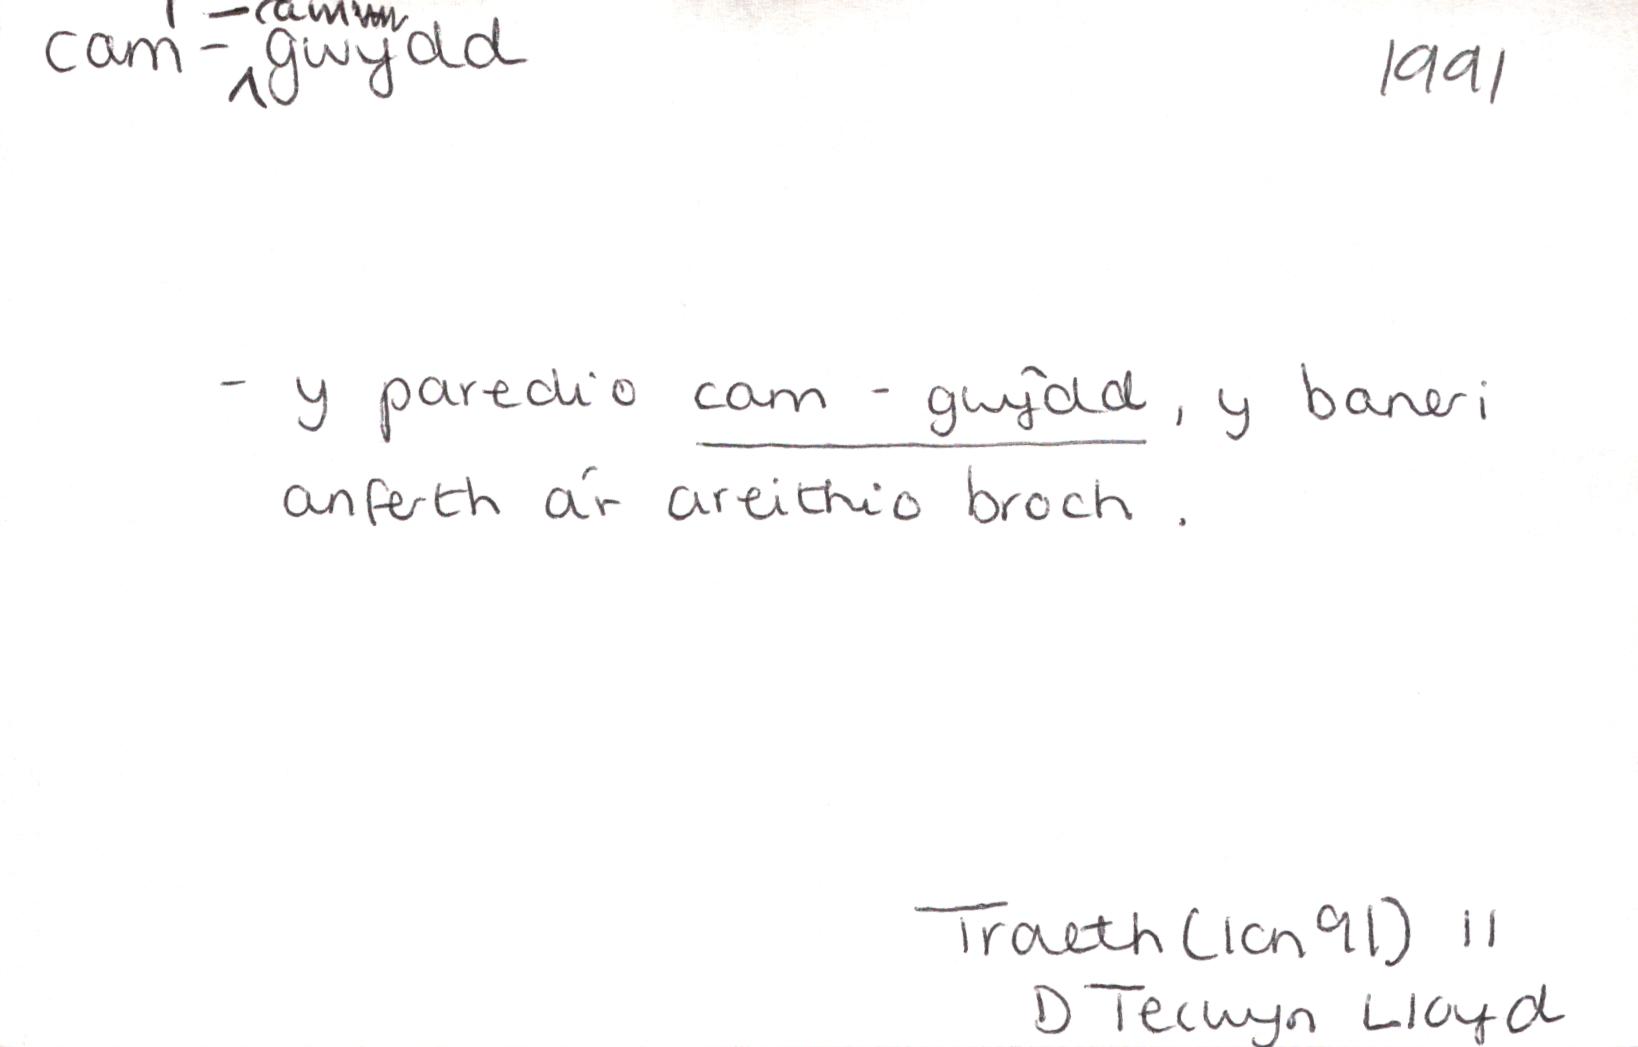 –camm
cam - ‸gwŷdd 1991
- y paredio cam - gwŷdd, y baneri
anferth a'r areithio broch.
Traeth (Ion 91) 11
D Tecwyn Lloyd